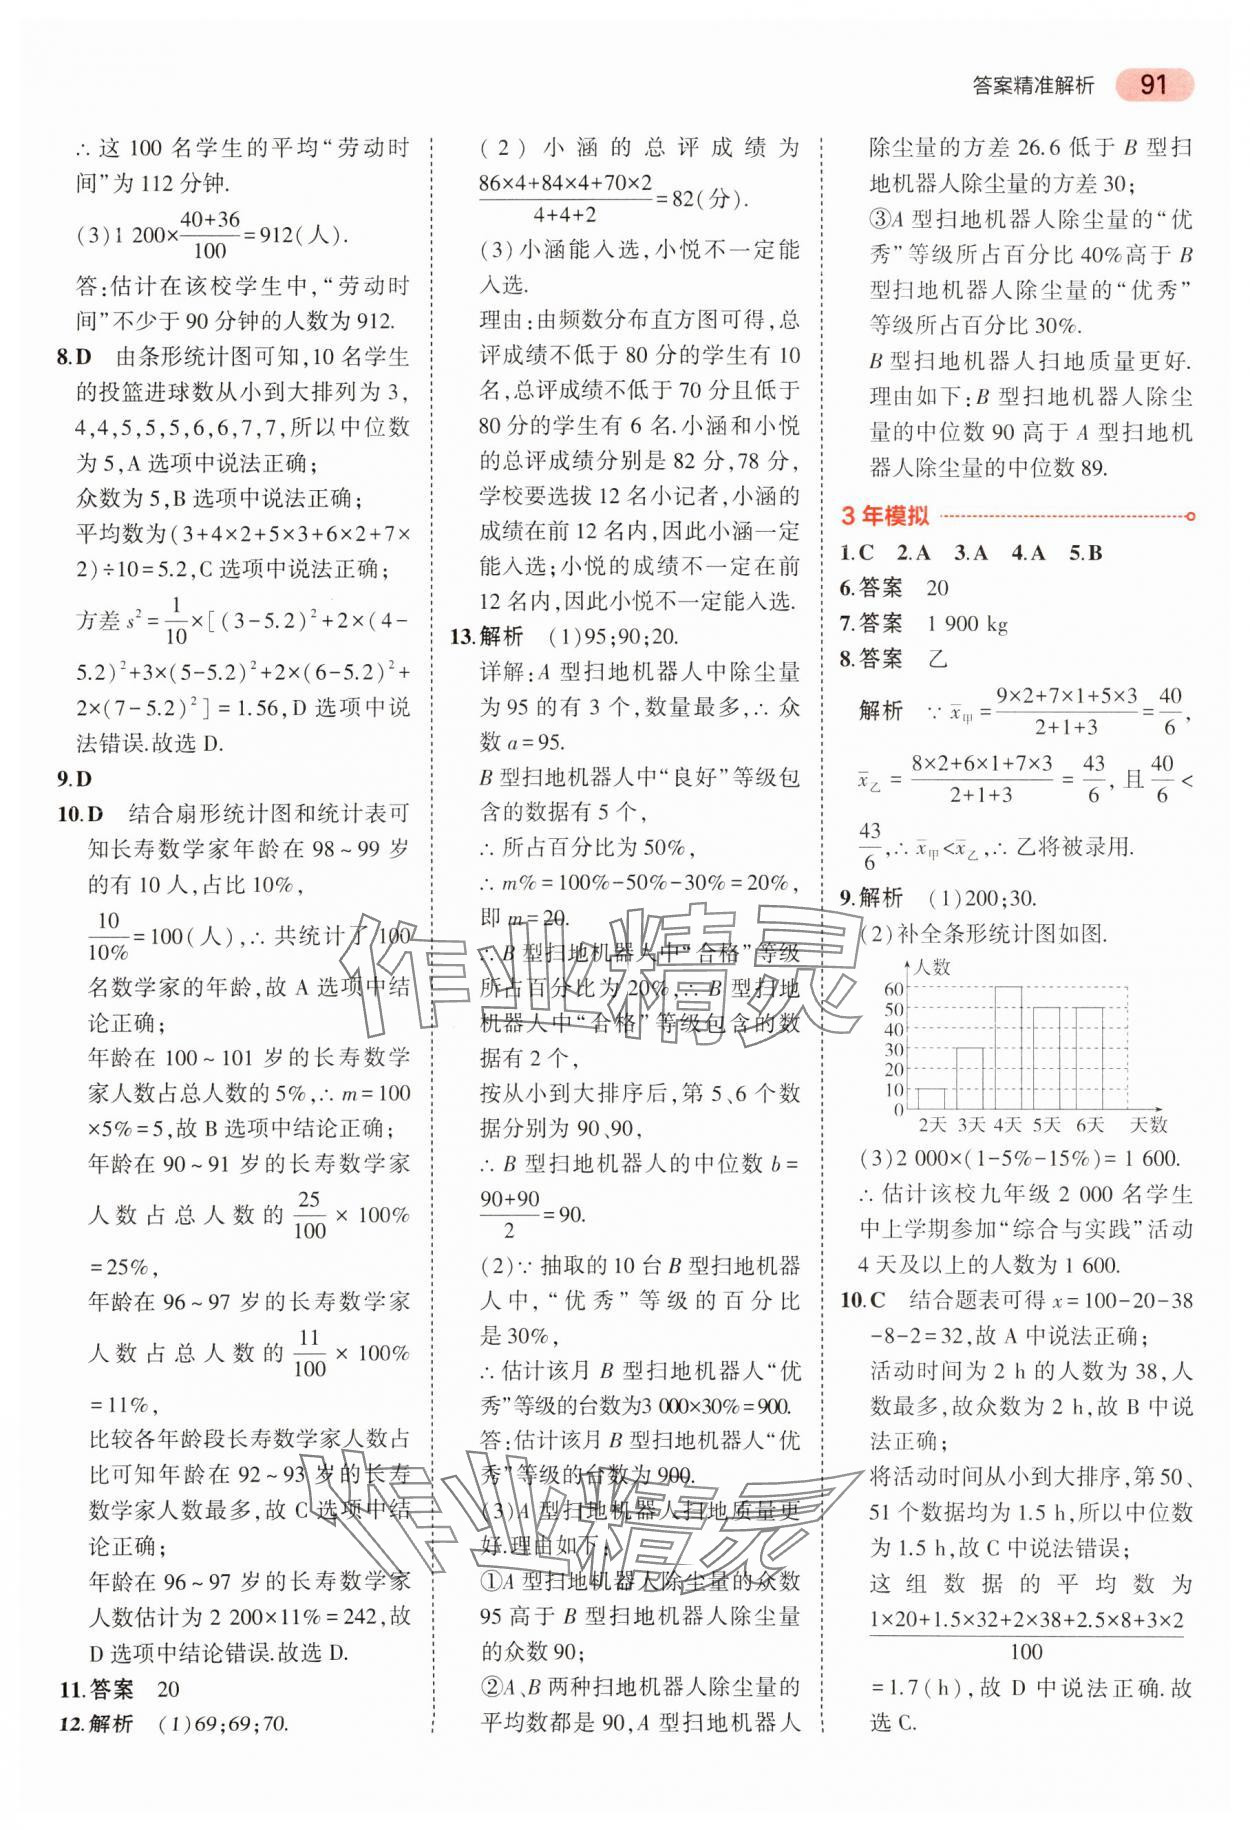 答案精准解析 91
∴这 100 名学生的平均“劳动时
间”为 112 分钟.
(3)1 200×\frac{40+36}{100}=912(人).
答:估计在该校学生中,“劳动时
间”不少于 90 分钟的人数为 912.
8.D 由条形统计图可知,10 名学生
的投篮进球数从小到大排列为 3,
4,4,5,5,5,6,6,7,7,所以中位数
为 5,A 选项中说法正确;
众数为 5,B 选项中说法正确;
平均数为(3+4×2+5×3+6×2+7×
2)÷10=5.2,C 选项中说法正确;
方差 s²=\frac{1}{10}×[(3-5.2)²+2×(4-
5.2)²+3×(5-5.2)²+2×(6-5.2)²+
2×(7-5.2)²]=1.56,D 选项中说
法错误.故选 D.
9.D
10.D 结合扇形统计图和统计表可
知长寿数学家年龄在 98~99 岁
的有 10 人,占比 10%,
\frac{10}{10%}=100(人),∴共统计了 100
名数学家的年龄,故 A 选项中结
论正确;
年龄在 100~101 岁的长寿数学
家人数占总人数的 5%,∴m=100
×5%=5,故 B 选项中结论正确;
年龄在 90~91 岁的长寿数学家
人数占总人数的 \frac{25}{100}×100%
=25%,
年龄在 96~97 岁的长寿数学家
人数占总人数的 \frac{11}{100}×100%
=11%,
比较各年龄段长寿数学家人数占
比可知年龄在 92~93 岁的长寿
数学家人数最多,故 C 选项中结
论正确;
年龄在 96~97 岁的长寿数学家
人数估计为 2 200×11%=242,故
D 选项中结论错误.故选 D.
11.答案 20
12.解析 (1)69;69;70.
(2)小涵的总评成绩为
\frac{86×4+84×4+70×2}{4+4+2}=82(分).
(3)小涵能入选,小悦不一定能
入选.
理由:由频数分布直方图可得,总
评成绩不低于 80 分的学生有 10
名,总评成绩不低于 70 分且低于
80 分的学生有 6 名.小涵和小悦
的总评成绩分别是 82 分,78 分,
学校要选拔 12 名小记者,小涵的
成绩在前 12 名内,因此小涵一定
能入选;小悦的成绩不一定在前
12 名内,因此小悦不一定能入选.
13.解析 (1)95;90;20.
详解:A 型扫地机器人中除尘量
为 95 的有 3 个,数量最多,∴众
数 a=95.
B 型扫地机器人中“良好”等级包
含的数据有 5 个,
∴所占百分比为 50%,
∴m%=100%-50%-30%=20%,
即 m=20.
∴B 型扫地机器人中“合格”等级
所占百分比为 20%,∴B 型扫地
机器人中“合格”等级包含的数
据有 2 个,
按从小到大排序后,第 5、6 个数
据分别为 90、90,
∴B 型扫地机器人的中位数 b=
\frac{90+90}{2}=90.
(2)∵抽取的 10 台 B 型扫地机器
人中,“优秀”等级的百分比
是 30%,
∴估计该月 B 型扫地机器人“优
秀”等级的台数为3 000×30%=900.
答:估计该月 B 型扫地机器人“优
秀”等级的台数为 900.
(3)A 型扫地机器人扫地质量更
好.理由如下:
①A 型扫地机器人除尘量的众数
95 高于 B 型扫地机器人除尘量
的众数 90;
②A、B 两种扫地机器人除尘量的
平均数都是 90,A 型扫地机器人
除尘量的方差 26.6 低于 B 型扫
地机器人除尘量的方差 30;
③A 型扫地机器人除尘量的“优
秀”等级所占百分比 40%高于 B
型扫地机器人除尘量的“优秀”
等级所占百分比 30%.
B 型扫地机器人扫地质量更好.
理由如下:B 型扫地机器人除尘
量的中位数 90 高于 A 型扫地机
器人除尘量的中位数 89.
3 年模拟
1.C 2.A 3.A 4.A 5.B
6.答案 20
7.答案 1 900 kg
8.答案 乙
解析 ∵x̄甲=\frac{9×2+7×1+5×3}{2+1+3}=\frac{40}{6},
x̄乙=\frac{8×2+6×1+7×3}{2+1+3}=\frac{43}{6},且\frac{40}{6}<
\frac{43}{6},∴x̄甲<x̄乙,∴乙将被录用.
9.解析 (1)200;30.
(2)补全条形统计图如图.
人数
60
50
40
30
20
10
0
2天 3天 4天 5天 6天 天数
(3)2 000×(1-5%-15%)=1 600.
∴估计该校九年级 2 000 名学生
中上学期参加“综合与实践”活动
4 天及以上的人数为 1 600.
10.C 结合题表可得 x=100-20-38
-8-2=32,故 A 中说法正确;
活动时间为 2 h 的人数为 38,人
数最多,故众数为 2 h,故 B 中说
法正确;
将活动时间从小到大排序,第 50、
51 个数据均为 1.5 h,所以中位数
为 1.5 h,故 C 中说法错误;
这组数据的平均数为
\frac{1×20+1.5×32+2×38+2.5×8+3×2}{100}
=1.7(h),故 D 中说法正确.故
选 C.
作业精灵
作业精灵